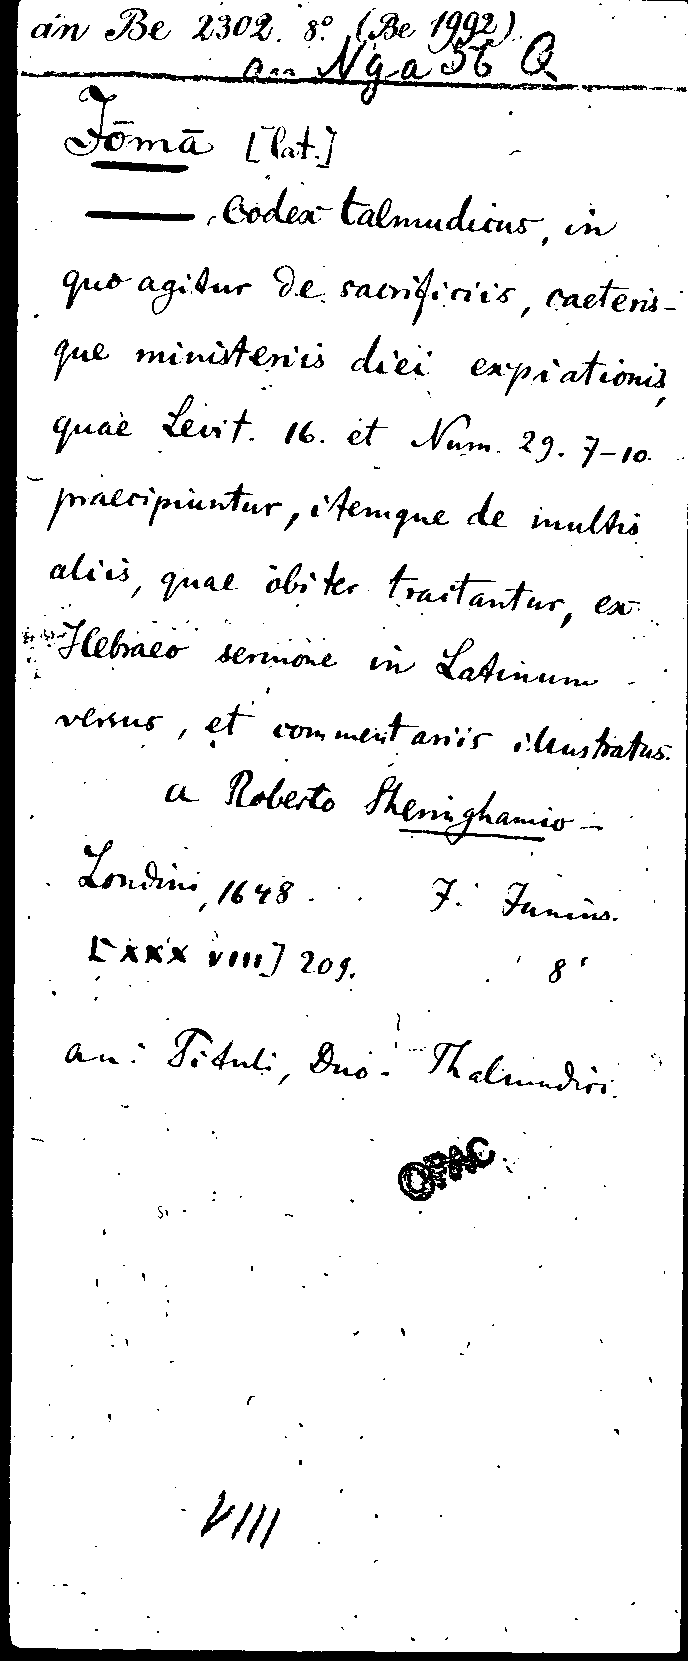 an Be 2302. 8° (Be 1992).
an Nga 56 Q
Jōmā [lat.]
—, Codex talmudicus, in
quo agitur de sacrificiis, caeteris-
que ministeriis diei expiationis,
quae Levit. 16. et Num. 29. 7-10.
praecipiuntur, itemque de multis
aliis, quae obiter tractantur, ex
Hebraeo sermone in Latinum
versus, et commentariis illustratus.
a Roberto Sheringhamio —
Londini, 1648. J. Junius.
[XXXVIII] 209. 8°
an: Tituli, Duo. Thalmudici.
OPAC
VIII